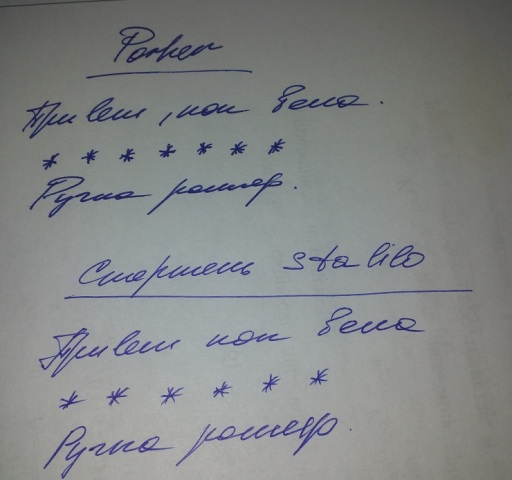 Parker
Привет, как дела.
* * * * * * *
Ручка роллер.
Стержень stabilo
Привет как дела
* * * * * *
Ручка роллер.